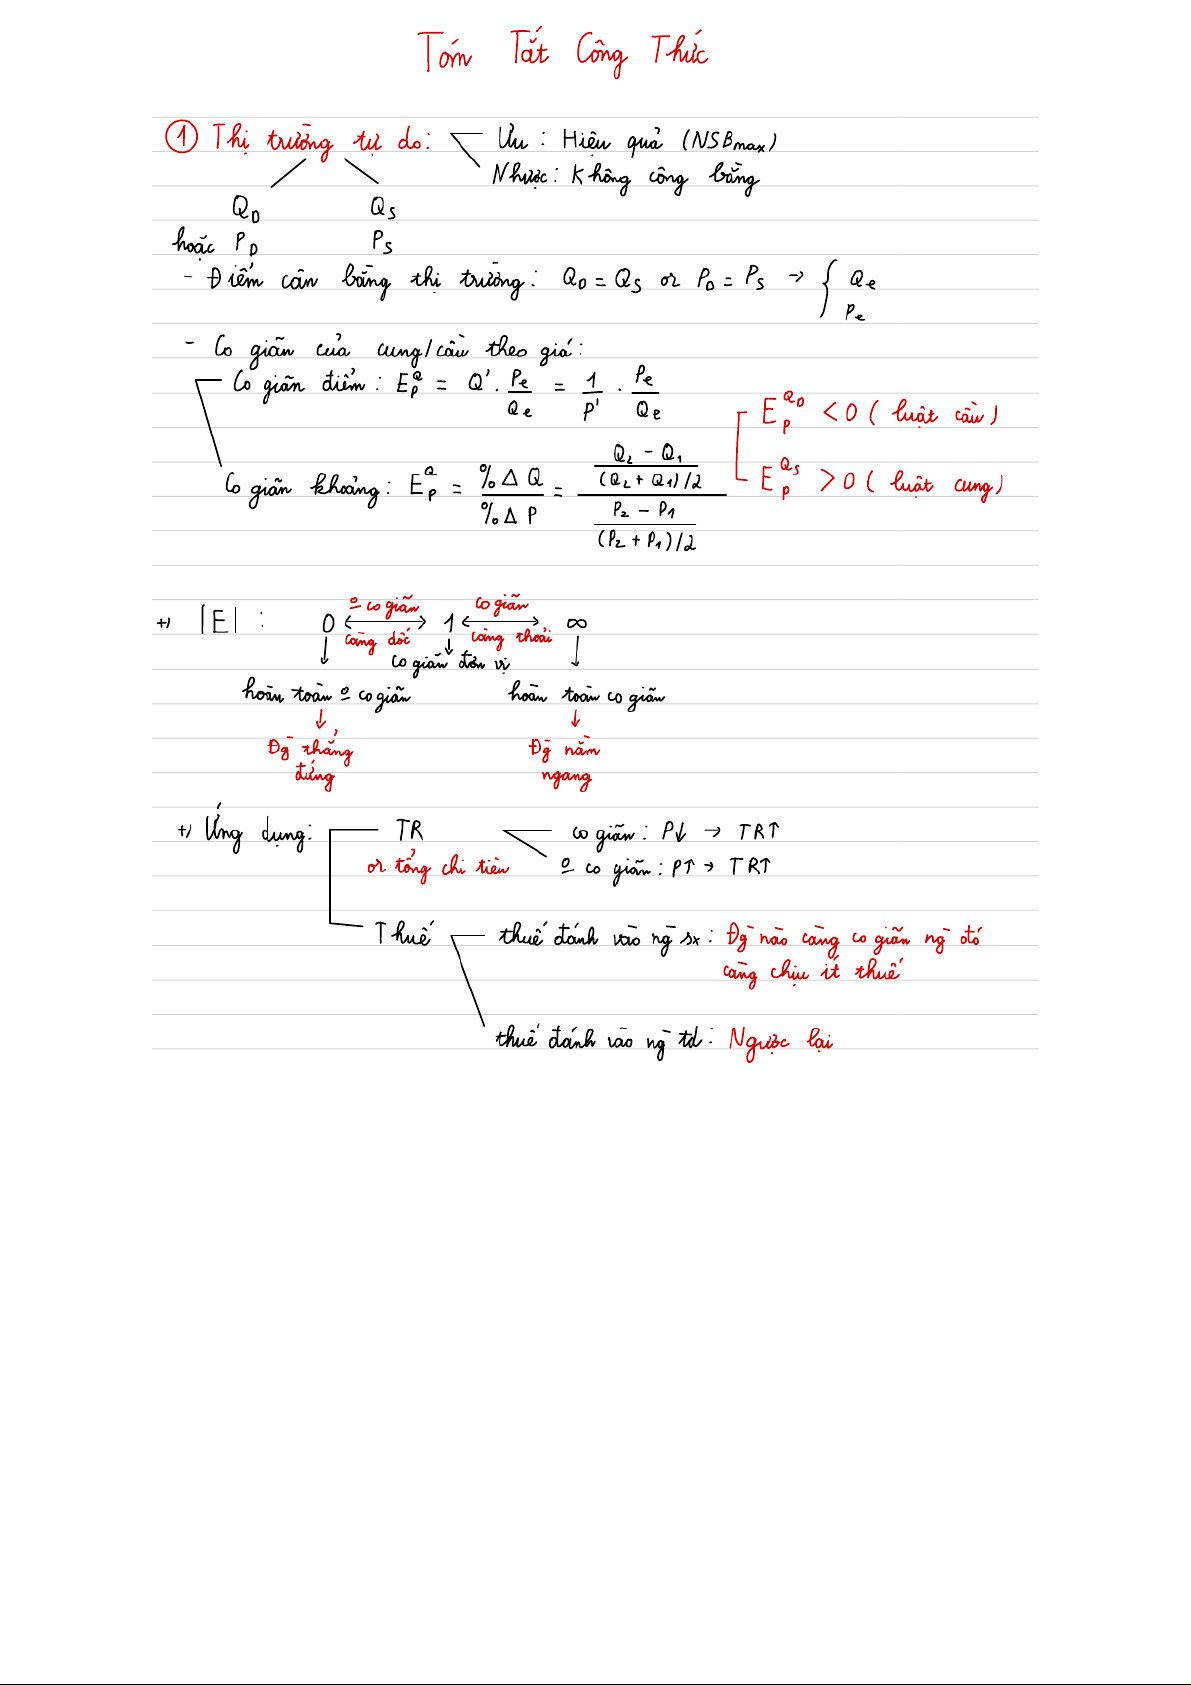 Tóm Tắt Công Thức
① Thị trường tự do: Ưu : Hiệu quả (NSBmax)
Nhược : Không công bằng
QD QS
hoặc PD PS
- Điểm cân bằng thị trường : QD = QS or PD = PS → { Qe
Pe
- Co giãn của cung/cầu theo giá :
Co giãn điểm : E_P^Q = Q' . Pe/Qe = 1/P' . Pe/Qe
E_P^QD < 0 ( luật cầu )
Co giãn khoảng : E_P^Q = %ΔQ/%ΔP = ((Q2 - Q1)/((Q2 + Q1)/2))/((P2 - P1)/((P2 + P1)/2))
E_P^QS > 0 ( luật cung )
+) |E| : 0 ↔ 1 ↔ ∞
º co giãn co giãn
càng dốc càng thoải
co giãn đơn vị
hoàn toàn º co giãn hoàn toàn co giãn
Đg̀ thẳng Đg̀ nằm
đứng ngang
+) Ứng dụng : TR co giãn : P↓ → TR↑
or tổng chi tiền º co giãn : P↑ → TR↑
Thuế thuế đánh vào ng̀ sx : Đg̀ nào càng co giãn ng̀ đó
càng chịu ít thuế
thuế đánh vào ng̀ td : Ngược lại